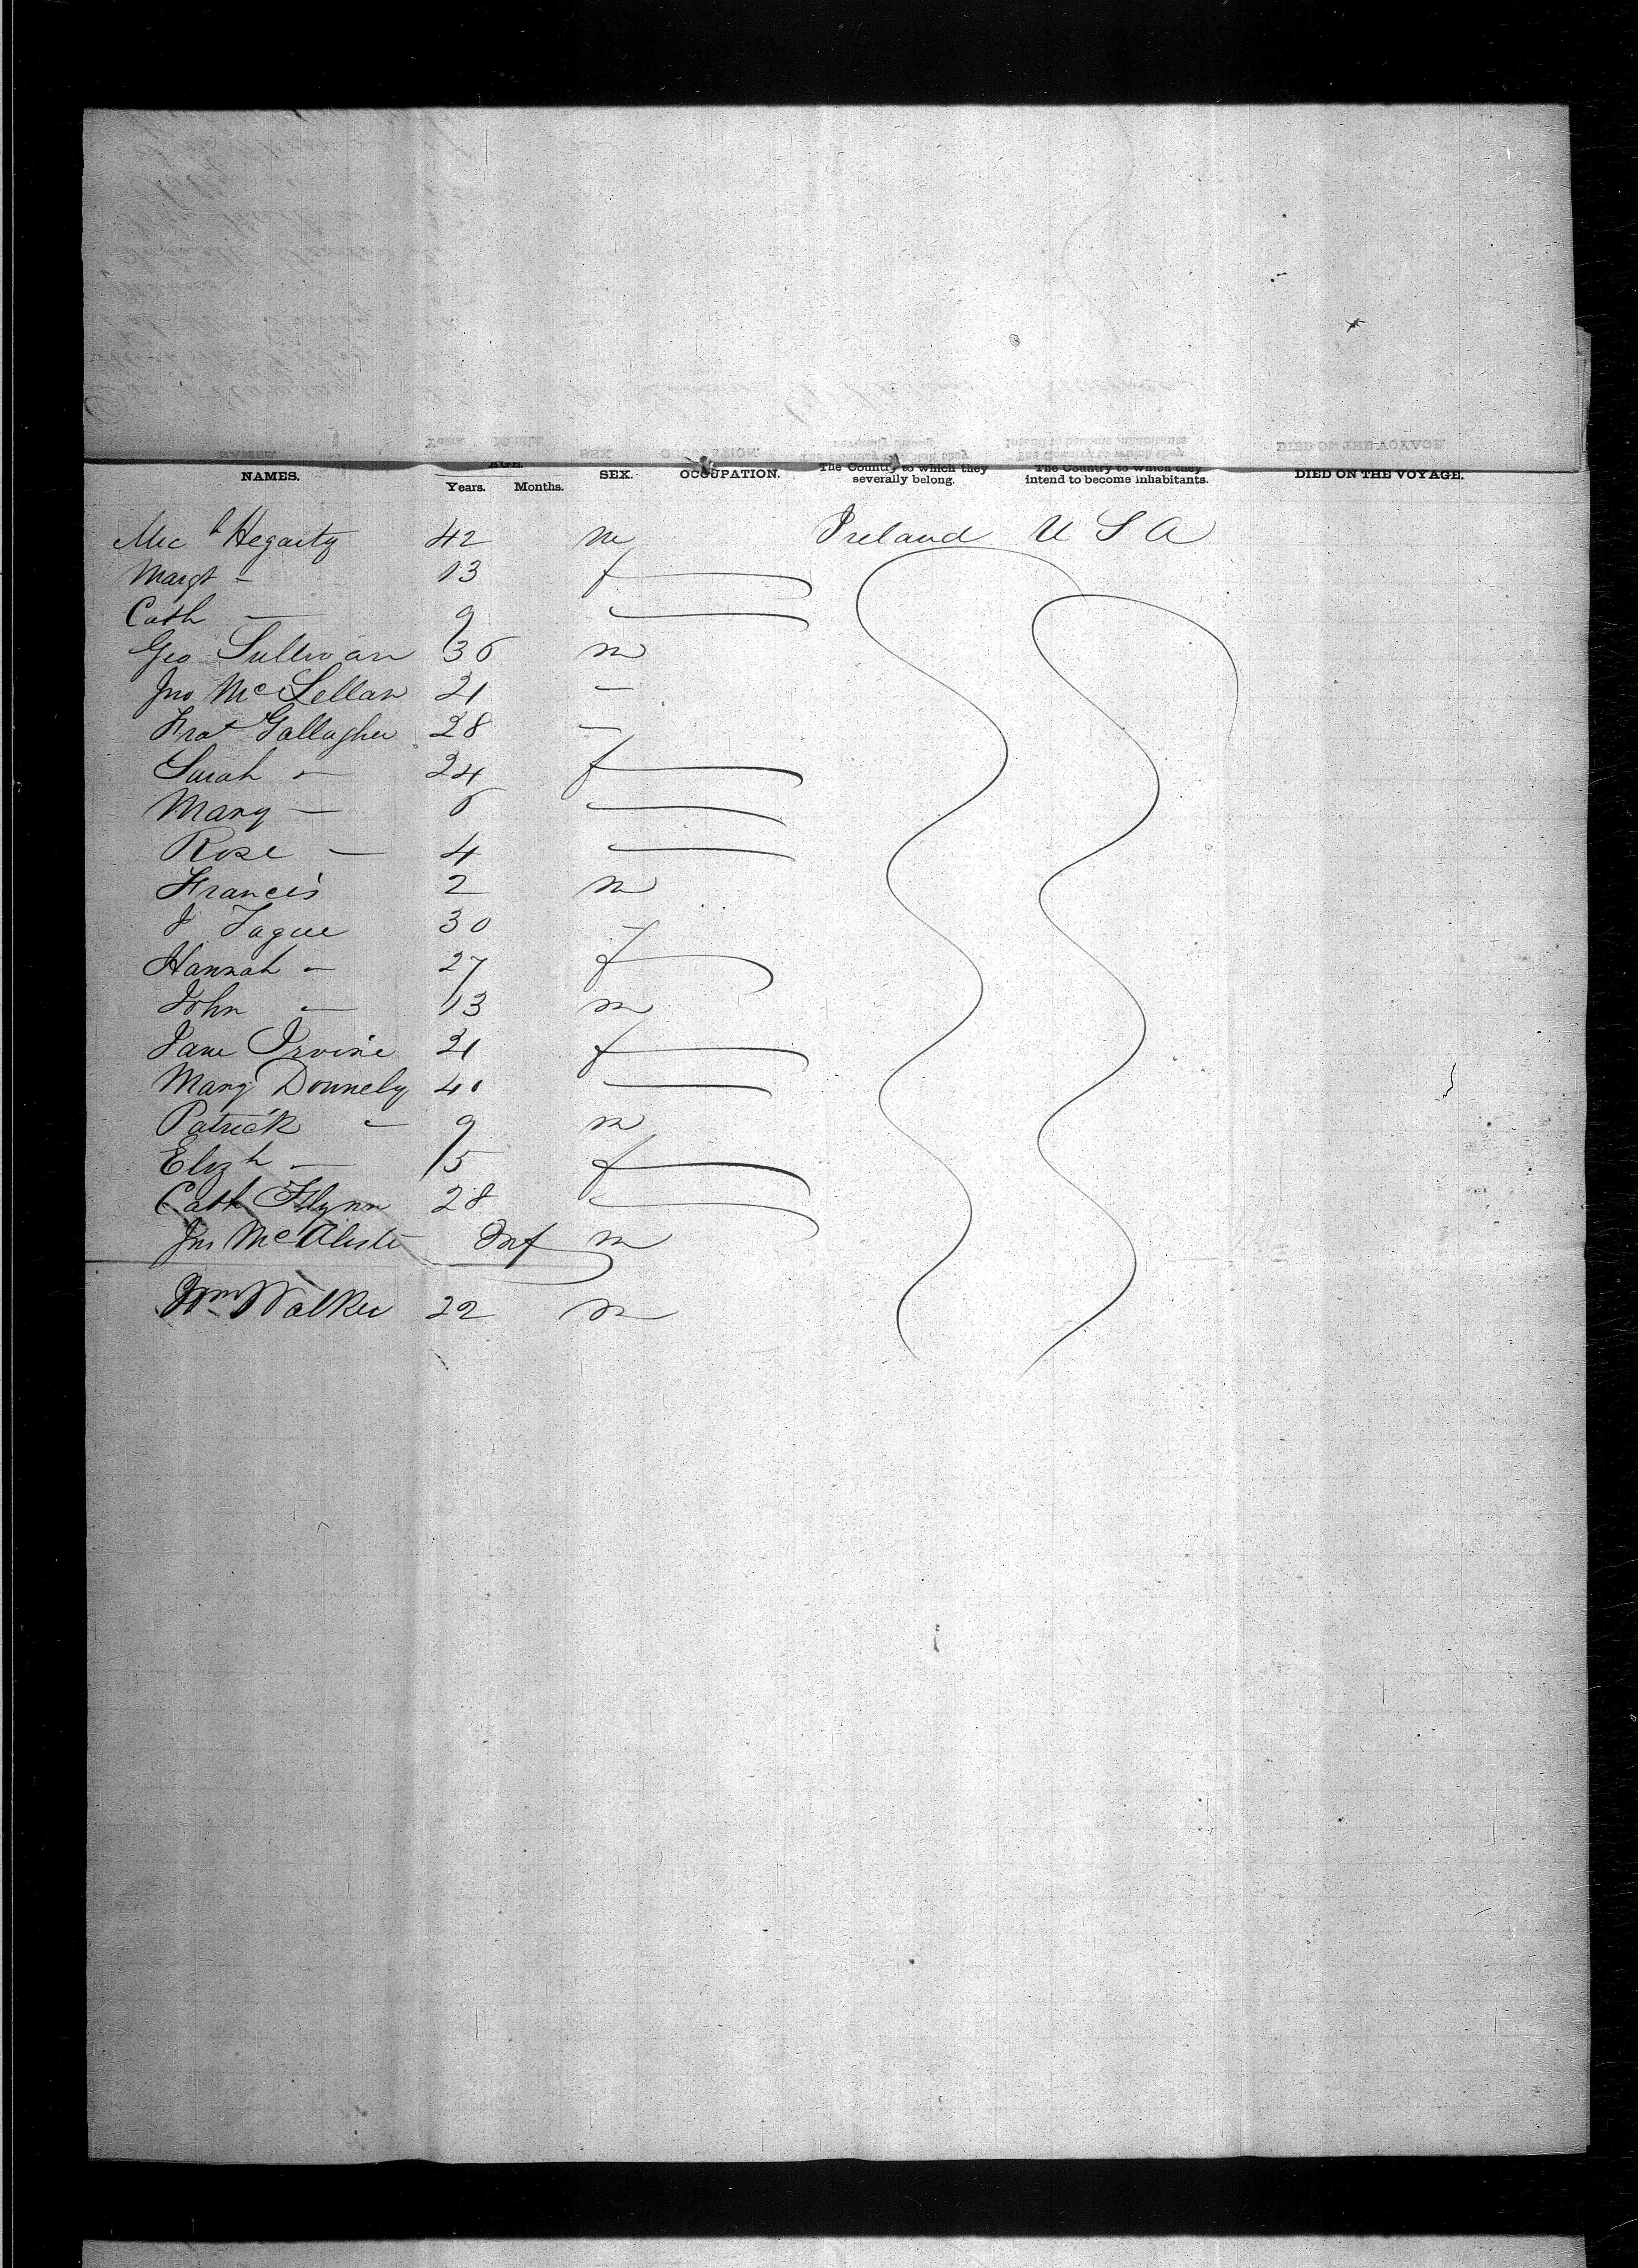 NAMES. AGE. Years. Months. SEX. OCCUPATION. The Country to which they severally belong. The Country to which they intend to become inhabitants. DIED ON THE VOYAGE.
Mich Hegarty 42 m Ireland U S A
Margt — 13 f
Cath — 9
Geo Sullivan 36 m
Jno McLellan 21 —
Frat Gallagher 28 —
Sarah — 24 f
Mary — 6
Rose — 4
Francis 2 m
J Tague 30 —
Hannah — 27 f
John — 13 m
Jane Irvine 21 f
Mary Donnely 40
Patrick — 9 m
Elizh — 15 f
Cath Flynn 28
Jno McAliste Inf m
Wm Walker 22 m